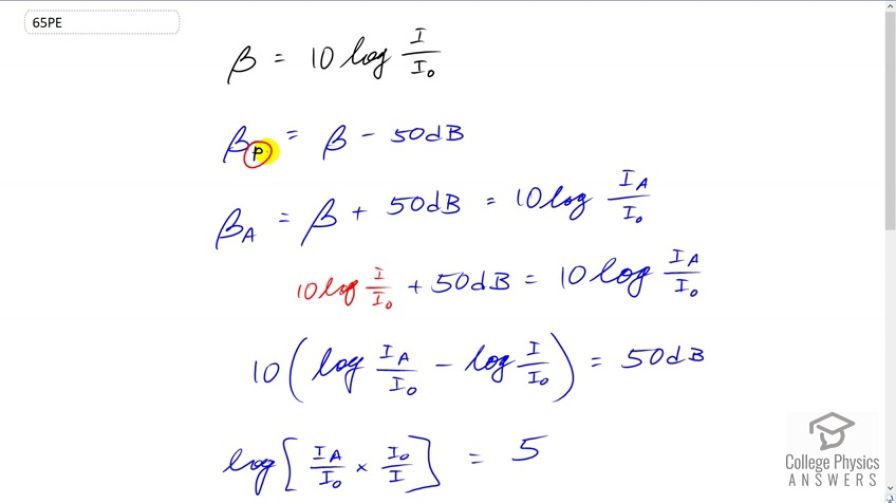 65PE
β = 10 log I/I₀
β_P = β - 50dB
β_A = β + 50dB = 10 log I_A/I₀
10 log I/I₀ + 50dB = 10 log I_A/I₀
10 ( log I_A/I₀ - log I/I₀ ) = 50dB
log [ I_A/I₀ × I₀/I ] = 5
College Physics
ANSWERS